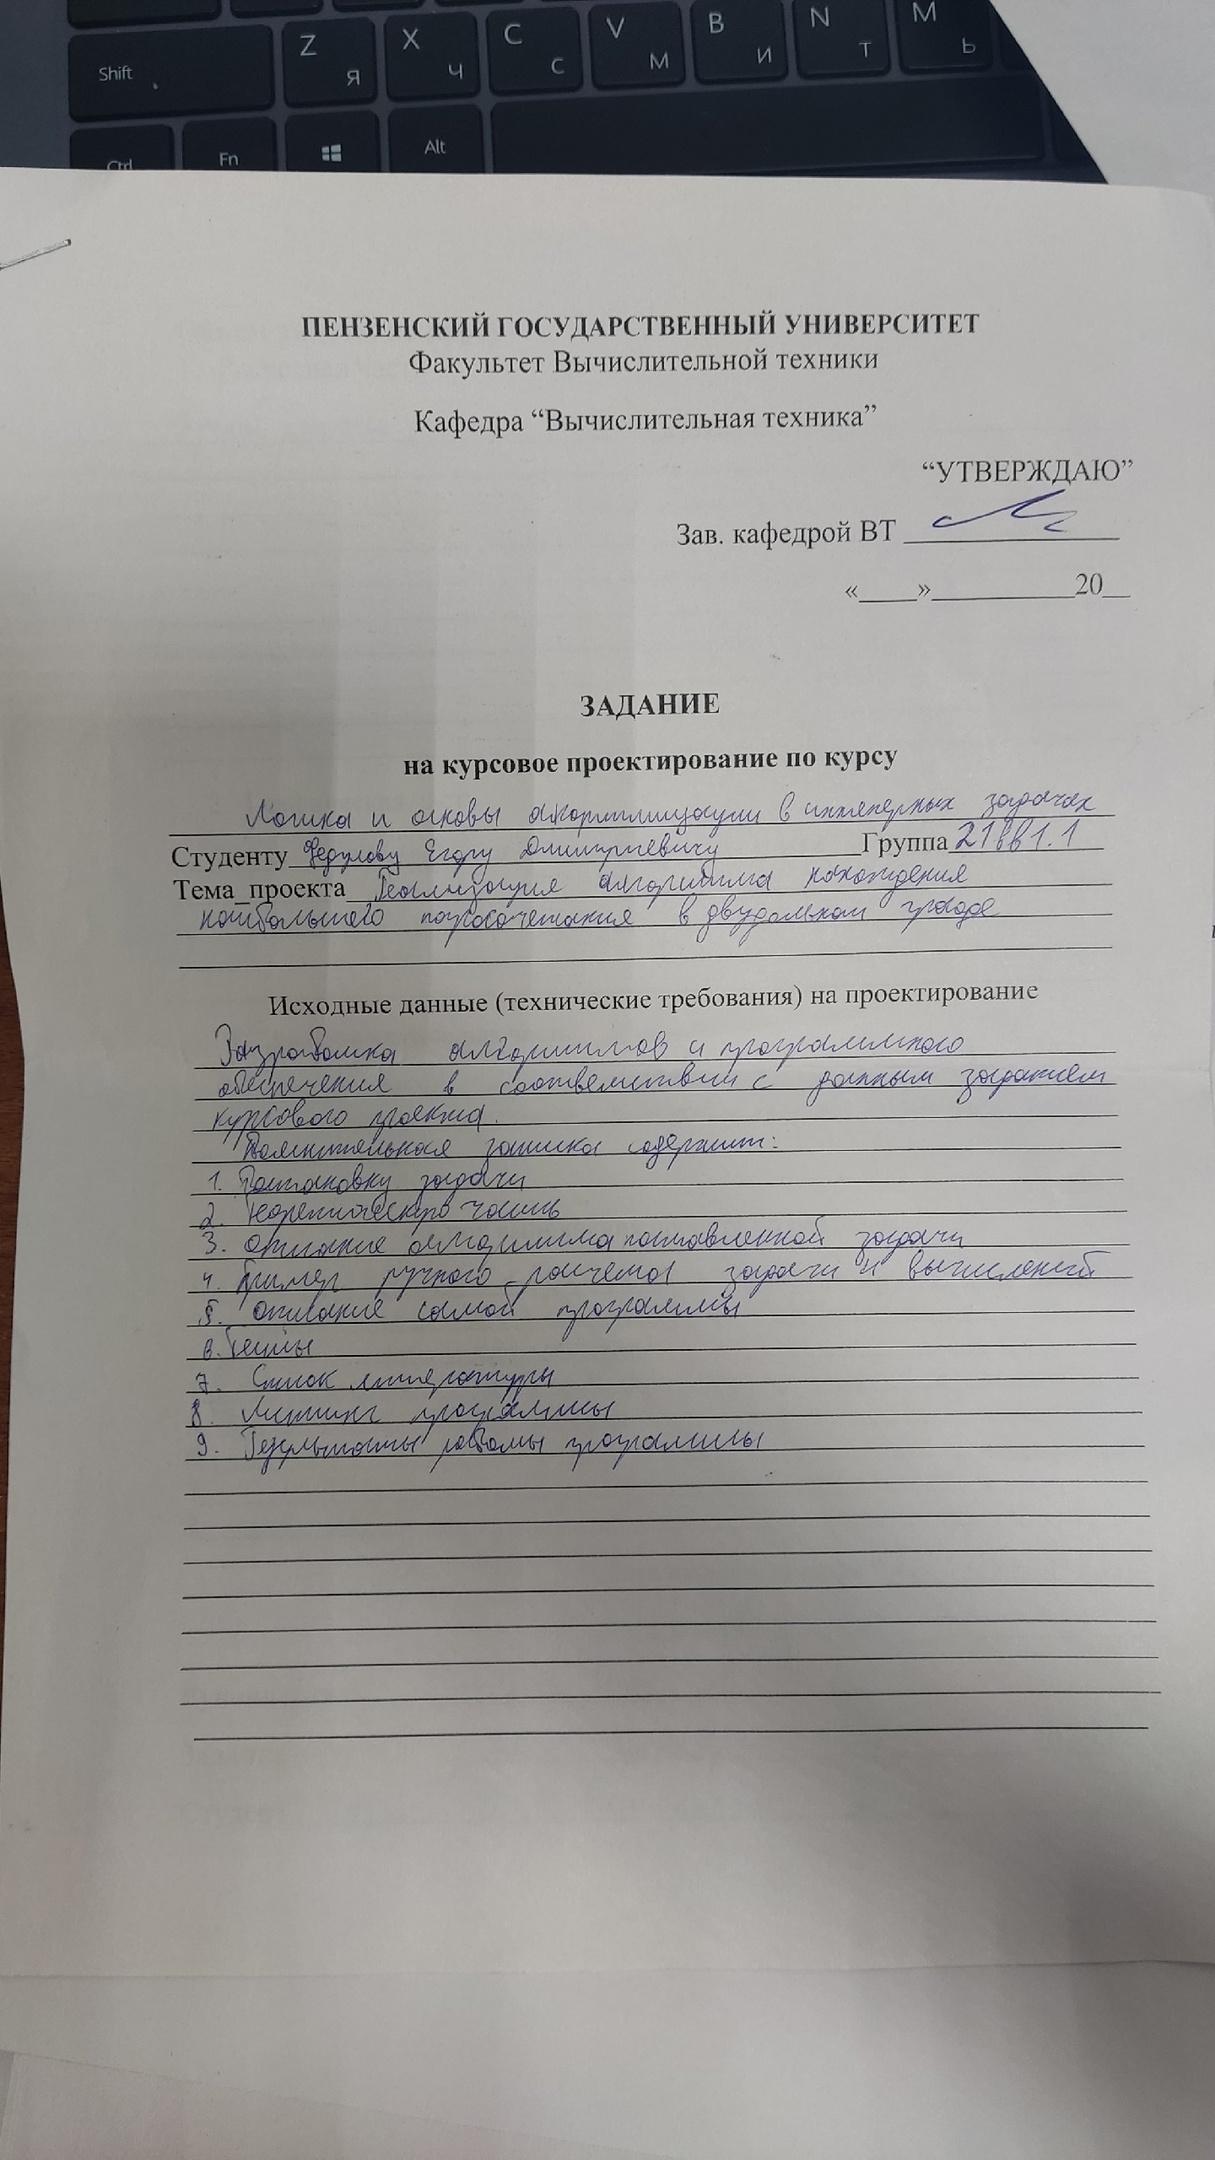 Shift
Z Я
X Ч
C С
V М
B И
N Т
M Ь
Ctrl
Fn
Alt
ПЕНЗЕНСКИЙ ГОСУДАРСТВЕННЫЙ УНИВЕРСИТЕТ
Факультет Вычислительной техники
Кафедра “Вычислительная техника”
“УТВЕРЖДАЮ”
Зав. кафедрой ВТ
«____»__________20__
ЗАДАНИЕ
на курсовое проектирование по курсу
Логика и основы алгоритмизации в инженерных задачах
Студенту Федулову Егору Дмитриевичу Группа 21ВВ1.1
Тема проекта Реализация алгоритма нахождения
наибольшего паросочетания в двудольном графе
Исходные данные (технические требования) на проектирование
Разработка алгоритмов и программного
обеспечения в соответствии с данным заданием
курсового проекта.
Пояснительная записка содержит:
1. Постановку задачи
2. Теоретическую часть
3. Описание алгоритма поставленной задачи
4. Пример ручного расчета задачи и вычислений
5. Описание самой программы
6. Тесты
7. Список литературы
8. Листинг программы
9. Результаты работы программы